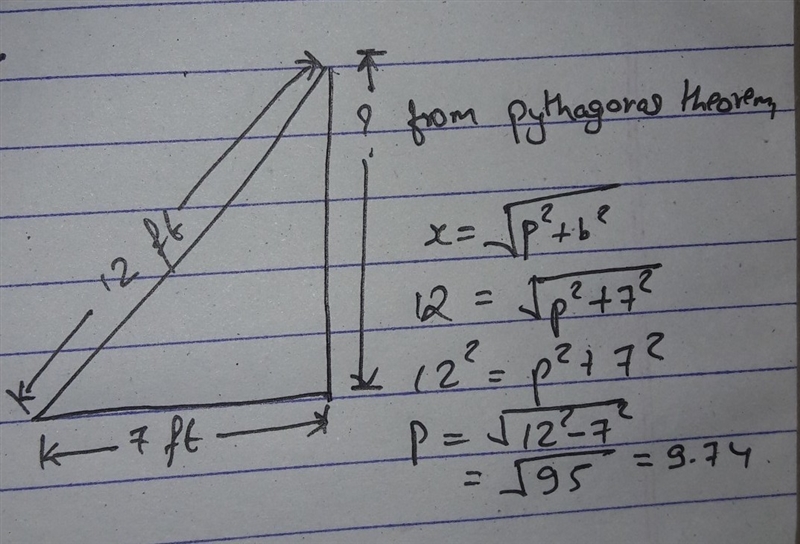 12 ft
7 ft
?
from pythagoras theorem,
x = √p²+b²
12 = √p²+7²
12² = p²+7²
P = √12²-7²
= √95 = 9.74